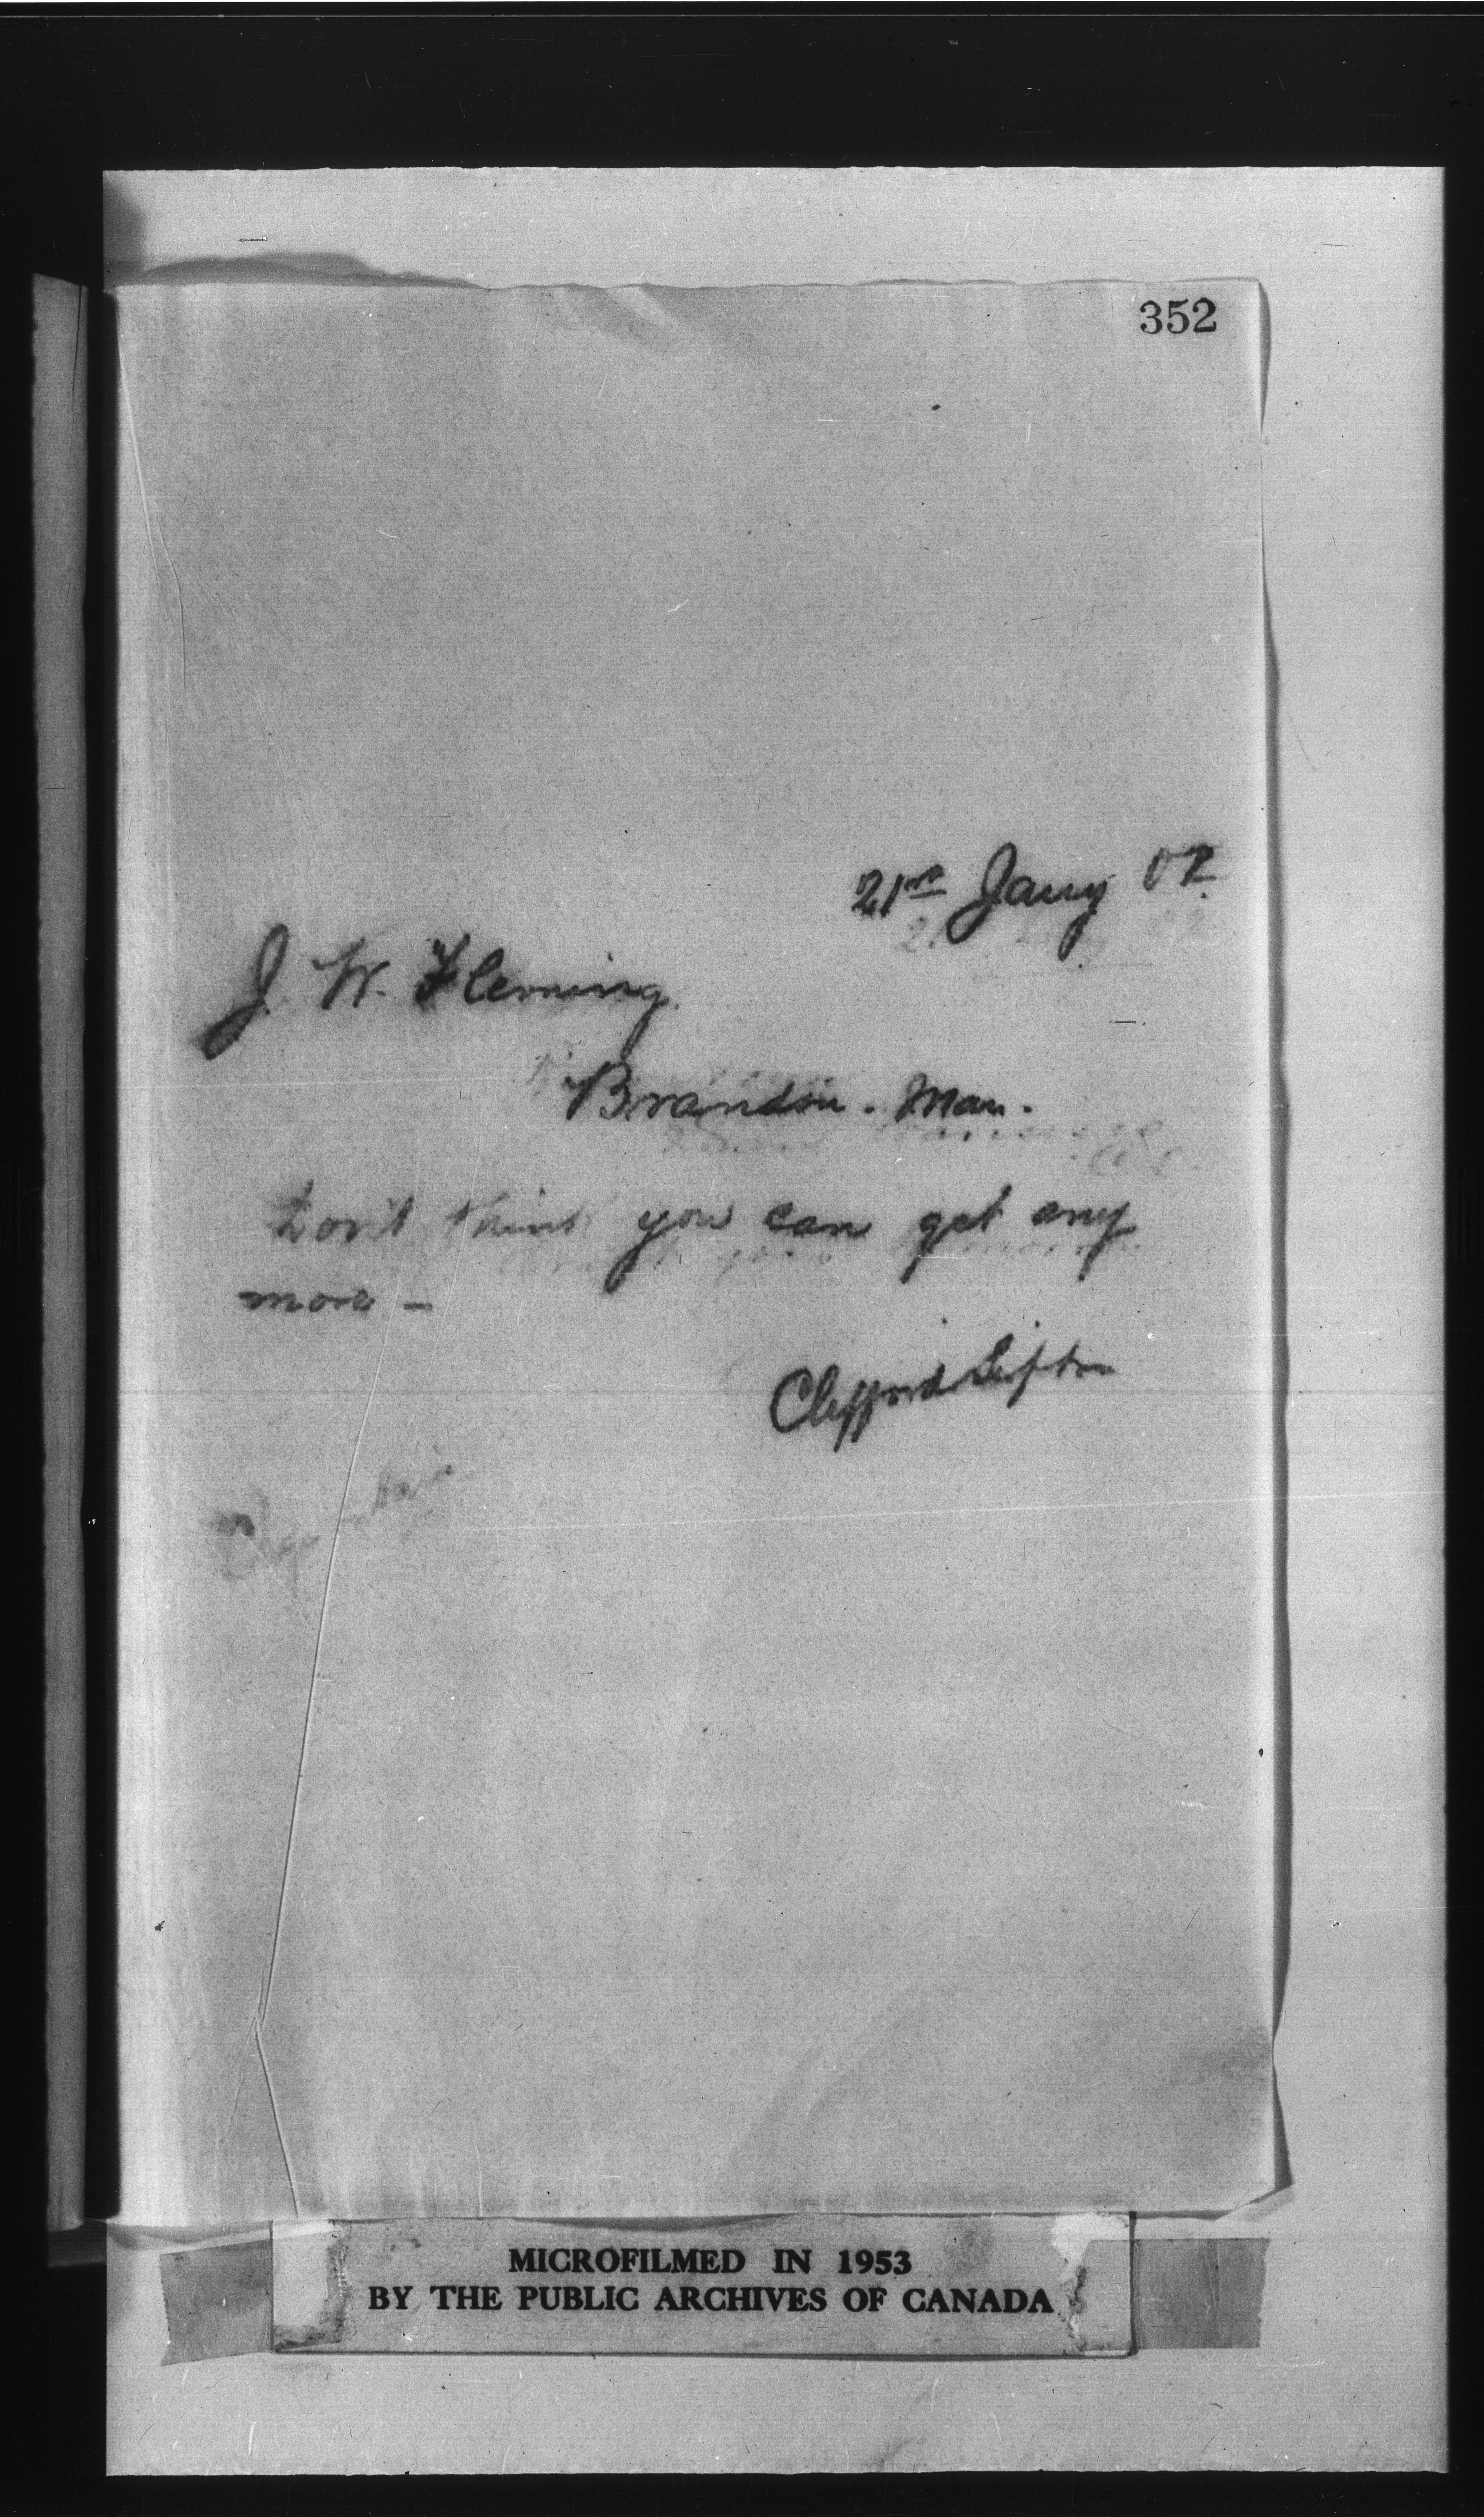 352
21st Jany 02.
J. W. Fleming.
Brandon. Man.
Don't think you can get any
more -
Clifford Sifton
MICROFILMED IN 1953
BY THE PUBLIC ARCHIVES OF CANADA